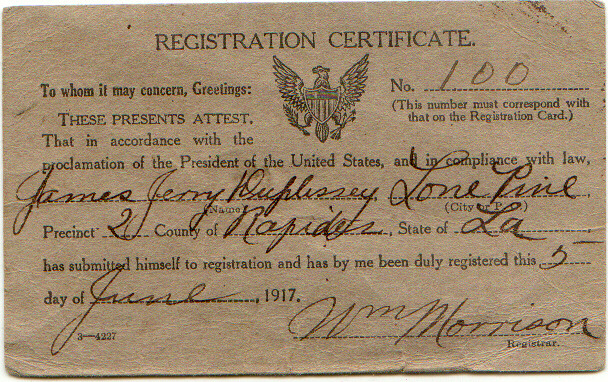 REGISTRATION CERTIFICATE.
To whom it may concern, Greetings:
No. 100
THESE PRESENTS ATTEST.
(This number must correspond with
that on the Registration Card.)
That in accordance with the
proclamation of the President of the United States, and in compliance with law,
James Jerry Duplissey, Lone Pine
(Name) (City or P.O.)
Precinct 2 County of Rapides, State of La
has submitted himself to registration and has by me been duly registered this 5
day of June, 1917.
Wm Morrison
3—4227
Registrar.